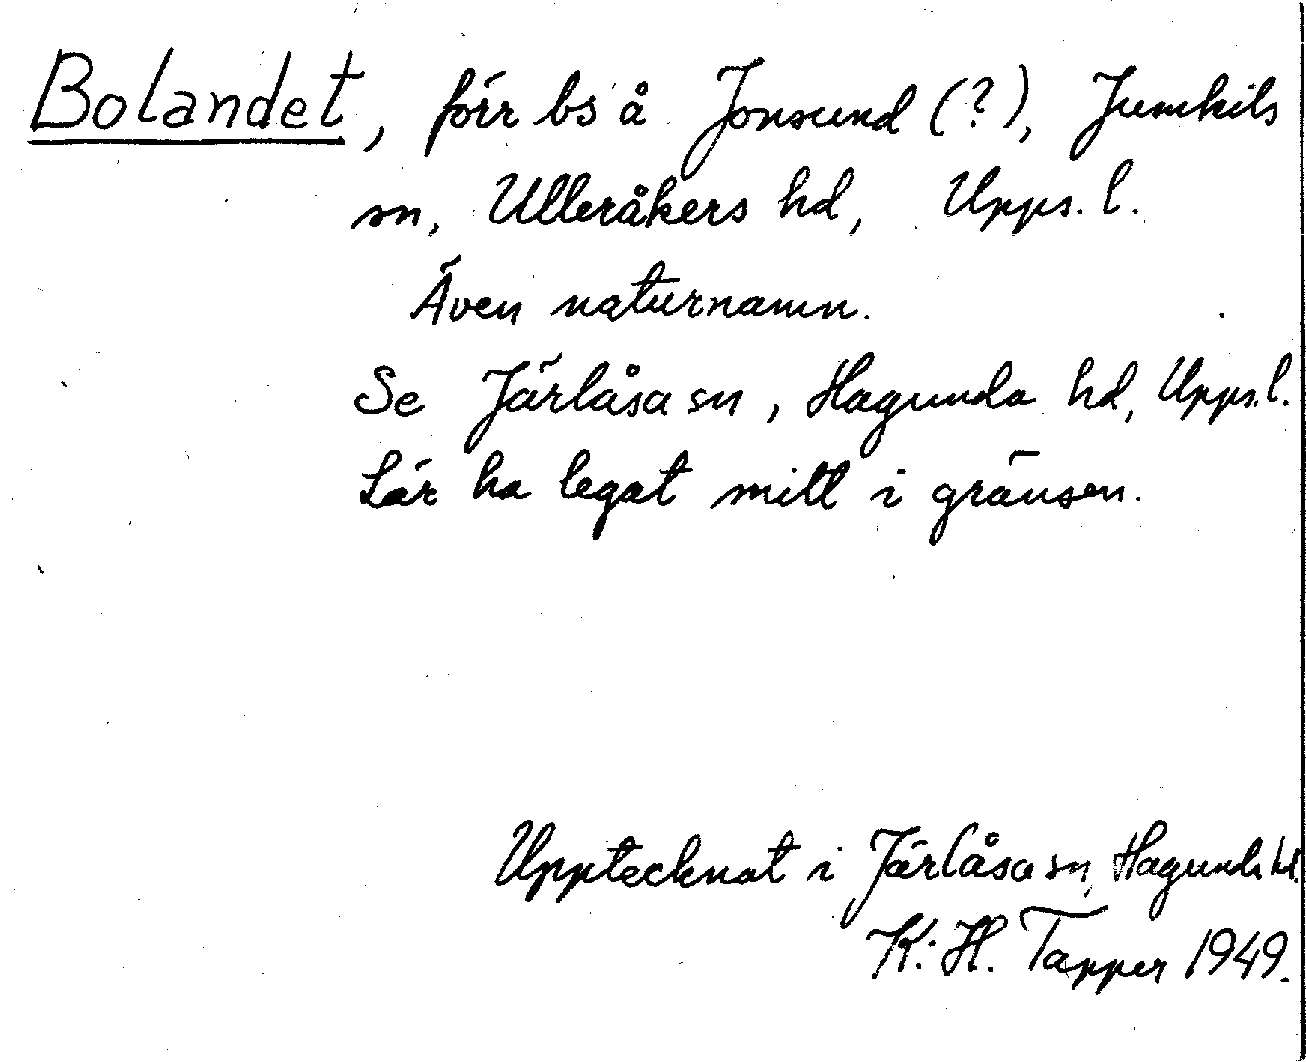 Bolandet, förr bs å Jonsund (?), Jumkils
sn, Ulleråkers hd, Upps. l.
Även naturnamn.
Se Järlåsa sn, Hagunda hd, Upps. l.
Lär ha legat mitt i gränsen.
Upptecknat i Järlåsa sn, Hagunda hd.
K.-H. Tapper 1949.